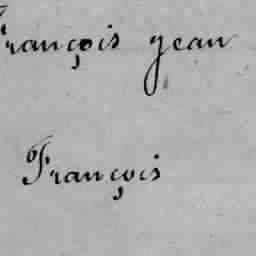 François jean
François